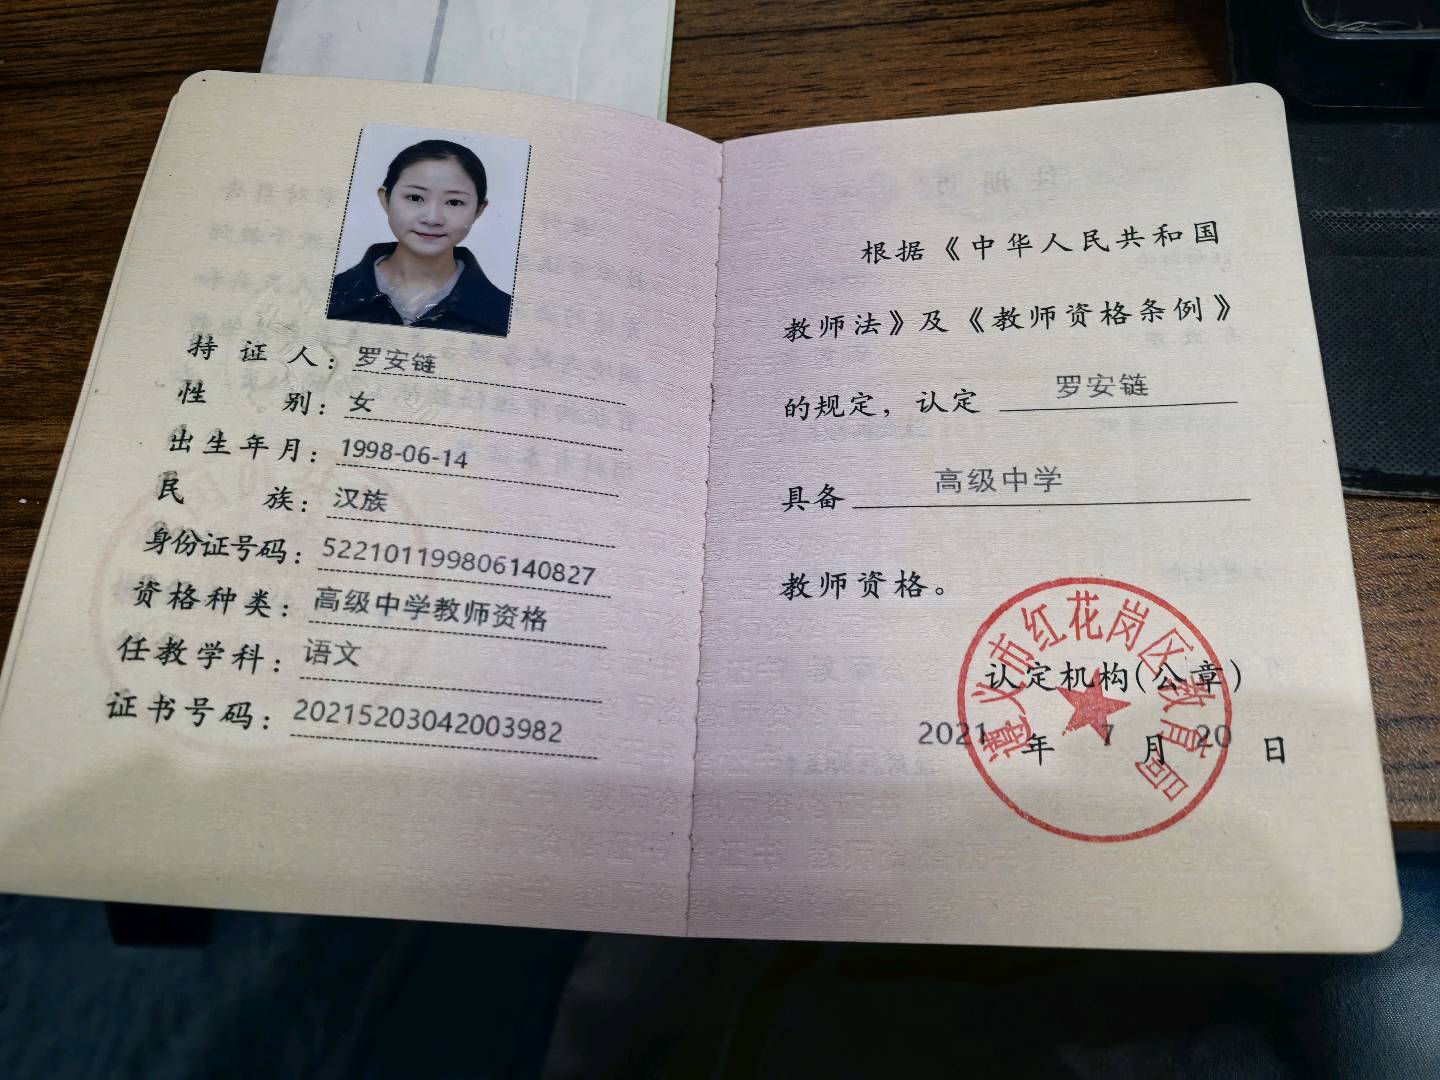 持证人：罗安链
性别：女
出生年月：1998-06-14
民族：汉族
身份证号码：522101199806140827
资格种类：高级中学教师资格
任教学科：语文
证书号码：20215203042003982
根据《中华人民共和国
教师法》及《教师资格条例》
的规定，认定 罗安链
具备 高级中学
教师资格。
认定机构(公章)
2021年7月20日
遵义市红花岗区教育局